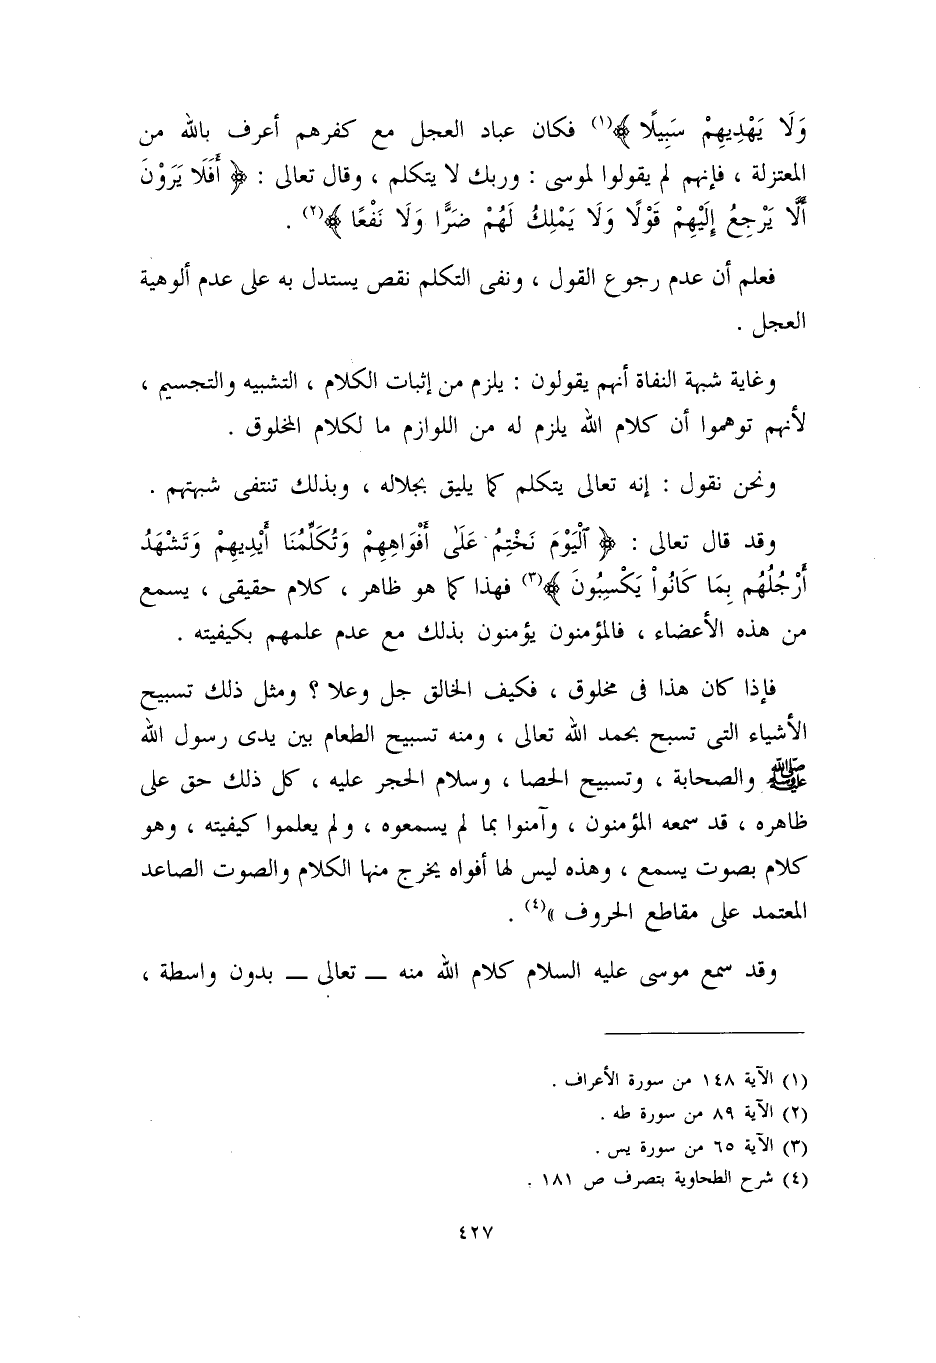 وَلَا يَهْدِيهِمْ سَبِيلًا ﴾(١) فكان عباد العجل مع كفرهم أعرف بالله من
المعتزلة ، فإنهم لم يقولوا لموسى : وربك لا يتكلم ، وقال تعالى : ﴿ أَفَلَا يَرَوْنَ
أَلَّا يَرْجِعُ إِلَيْهِمْ قَوْلًا وَلَا يَمْلِكُ لَهُمْ ضَرًّا وَلَا نَفْعًا ﴾(٢) .
فعلم أن عدم رجوع القول ، ونفى التكلم نقص يستدل به على عدم ألوهية
العجل .
وغاية شبهة النفاة أنهم يقولون : يلزم من إثبات الكلام ، التشبيه والتجسيم ،
لأنهم توهموا أن كلام الله يلزم له من اللوازم ما لكلام المخلوق .
ونحن نقول : إنه تعالى يتكلم كما يليق بجلاله ، وبذلك تنتفى شبهتهم .
وقد قال تعالى : ﴿ ٱلْيَوْمَ نَخْتِمُ عَلَىٰ أَفْوَاهِهِمْ وَتُكَلِّمُنَا أَيْدِيهِمْ وَتَشْهَدُ
أَرْجُلُهُم بِمَا كَانُواْ يَكْسِبُونَ ﴾(٣) فهذا كما هو ظاهر ، كلام حقيقى ، يسمع
من هذه الأعضاء ، فالمؤمنون يؤمنون بذلك مع عدم علمهم بكيفيته .
فإذا كان هذا فى مخلوق ، فكيف الخالق جل وعلا ؟ ومثل ذلك تسبيح
الأشياء التى تسبح بحمد الله تعالى ، ومنه تسبيح الطعام بين يدى رسول الله
ﷺ والصحابة ، وتسبيح الحصا ، وسلام الحجر عليه ، كل ذلك حق على
ظاهره ، قد سمعه المؤمنون ، وآمنوا بما لم يسمعوه ، ولم يعلموا كيفيته ، وهو
كلام بصوت يسمع ، وهذه ليس لها أفواه يخرج منها الكلام والصوت الصاعد
المعتمد على مقاطع الحروف »(٤) .
وقد سمع موسى عليه السلام كلام الله منه ــ تعالى ــ بدون واسطة ،
(١) الآية ١٤٨ من سورة الأعراف .
(٢) الآية ٨٩ من سورة طه .
(٣) الآية ٦٥ من سورة يس .
(٤) شرح الطحاوية بتصرف ص ١٨١ .
٤٢٧